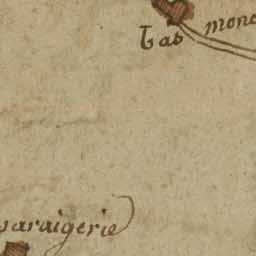 Las mone
varaigerie